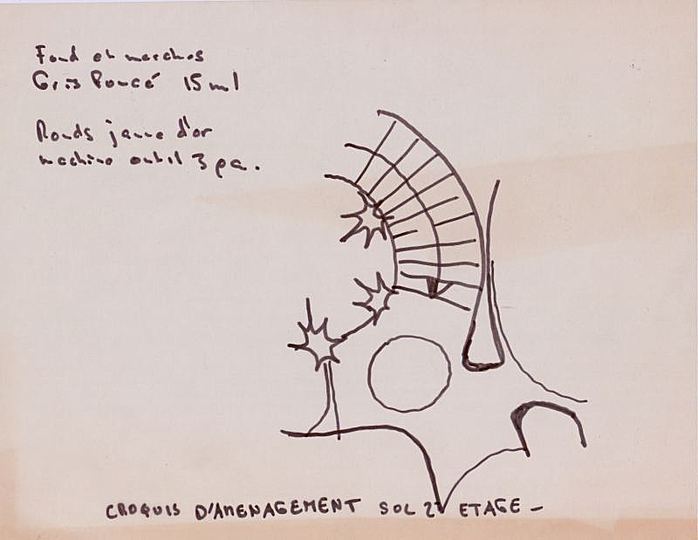 Fond et marches
Gris Poncé 15 ml
Ronds jaune d'or
machine outil 3 pa.
CROQUIS D'AMENAGEMENT SOL 2e ETAGE -